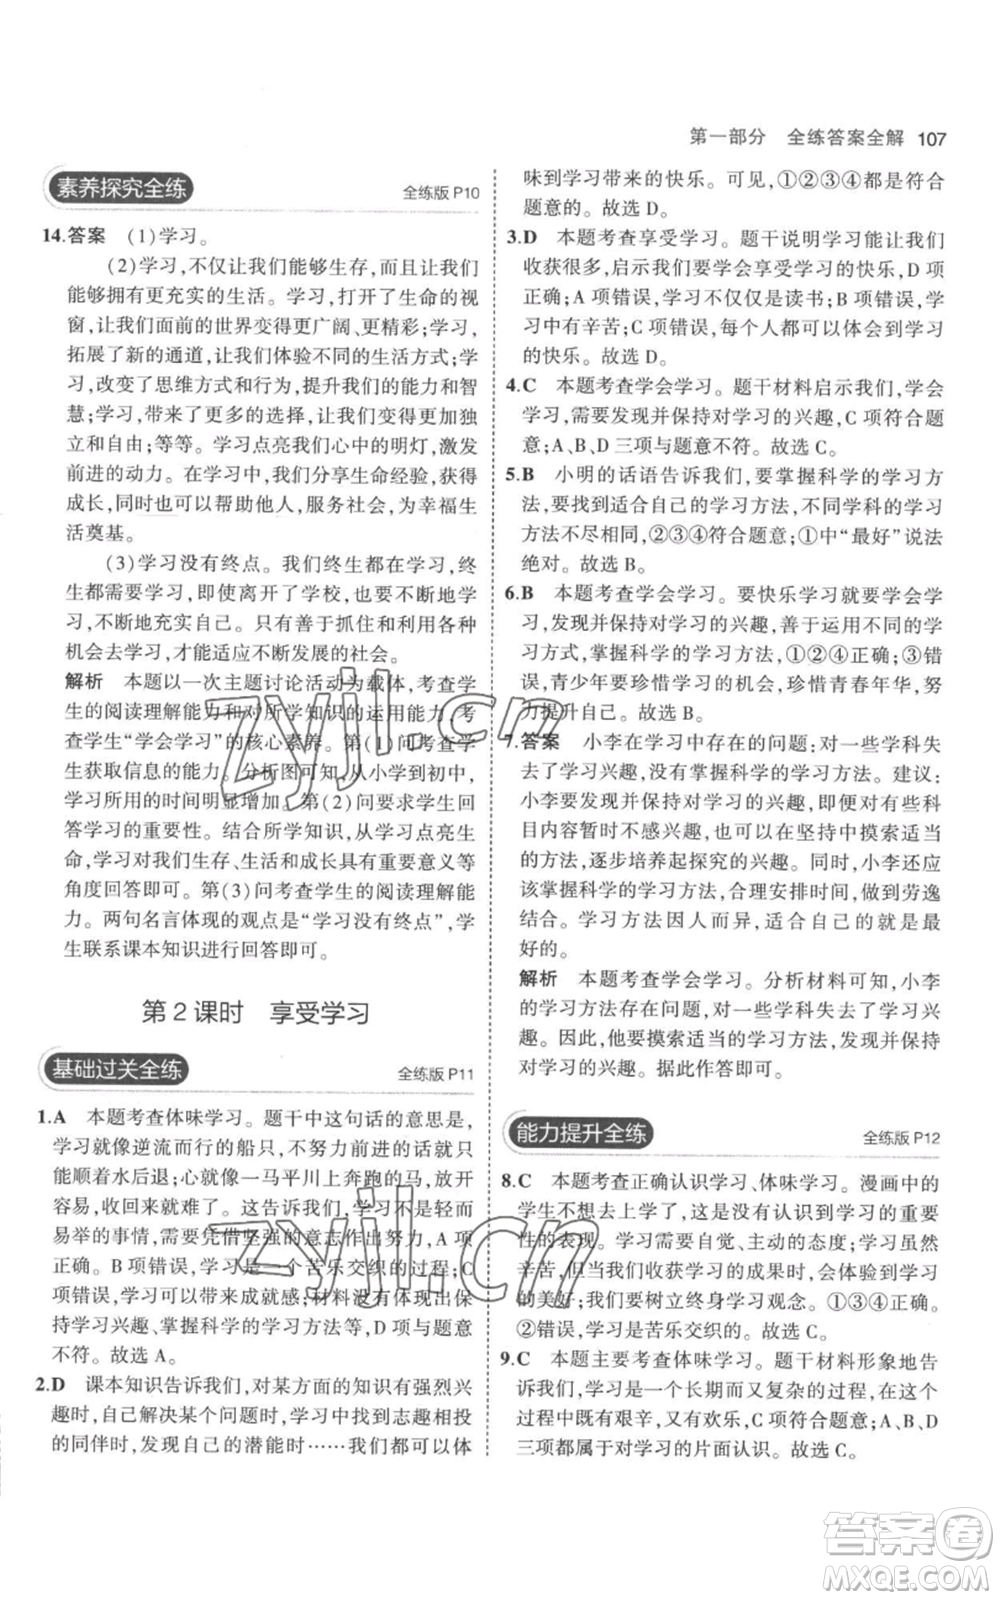 第一部分 全练答案全解 107
素养探究全练 全练版 P10
14.答案 (1)学习。
(2)学习,不仅让我们能够生存,而且让我们
能够拥有更充实的生活。学习,打开了生命的视
窗,让我们面前的世界变得更广阔、更精彩;学习,
拓展了新的通道,让我们体验不同的生活方式;学
习,改变了思维方式和行为,提升我们的能力和智
慧;学习,带来了更多的选择,让我们更加独
立和自由;等等。学习点亮我们心中的明灯,激发
前进的动力。在学习中,我们分享生命经验,获得
成长,同时也可以帮助他人,服务社会,为幸福生
活奠基。
(3)学习没有终点。我们终生都在学习,终
生都需要学习,即使离开了学校,也要不断地学
习,不断地充实自己。只有善于抓住和利用各种
机会去学习,才能适应不断发展的社会。
解析 本题以一次主题讨论活动为载体,考查学
生的阅读理解能力和对所学知识的运用能力,考
查学生“学会学习”的核心素养。第(1)问考查学
生获取信息的能力。分析图可知,从小学到初中,
学习所用的时间明显增加。第(2)问要求学生回
答学习的重要性。结合所学知识,从学习点亮生
命,学习对我们生存、生活和成长具有重要意义等
角度回答即可。第(3)问考查学生的阅读理解能
力。两句名言体现的观点是“学习没有终点”,学
生联系课本知识进行回答即可。
第 2 课时 享受学习
基础过关全练 全练版 P11
1.A 本题考查体味学习。题干中这句话的意思是,
学习就像逆流而行的船只,不努力前进的话就只
能倾着水后退。人的心则像在一马平川上奔跑的马,放
纵容易把守难。这告诉我们,学习不是一件轻而
易举的事情,需要凭借坚强的意志作出努力,A 项
正确。B 项错误,学习是一个苦乐交织的过程;C
项错误,学习可以带来成就感;材料没有体现出保
持学习兴趣、掌握学习的方法等,D 项与题意
不符。故选 A。
2.D 课本知识告诉我们,对某方面的知识有强烈兴
趣时,自己解决某个问题时,学习中找到志趣相投
的同伴时,发现自己的潜能时……我们都可以体
味到学习带来的快乐。可见,①②③④都是符合
题意的。故选 D。
3.D 本题考查享受学习。题干说明学习能让我们
收获很多,启示我们要学会享受学习的快乐,D 项
正确;A 项错误,学习不仅仅是读书;B 项错误,学
习中有辛苦;C 项错误,每个人都可以体会到学习
的快乐。故选 D。
4.C 本题考查学会学习。题干材料启示我们,学会
学习,需要发现并保持对学习的兴趣,C 项符合题
意;A、B、D 三项与题意不符。故选 C。
5.B 小明的话语告诉我们,要掌握科学的学习方
法,要找到适合自己的学习方法,不同学科的学习
方法不尽相同,②③④符合题意;①中“最好”说法
绝对。故选 B。
6.B 本题考查学会学习。要快乐学习就要学会学
习,发现并保持对学习的兴趣,善于运用不同的学
习方式,学会科学的学习方法,①②④正确;③错
误,青少年要珍惜学习的机会,珍惜青春年华,努
力提升自己。故选 B。
7.答案 小李在学习中存在的问题:对一些学科失
去了学习兴趣,没有掌握科学的学习方法。建议:
小李要发现并保持对学习的兴趣,即便对有些科
目内容暂时不感兴趣,也可以在坚持中摸索适当
的方法,逐步培养起探究的兴趣。同时,小李还应
该掌握科学的学习方法,合理安排时间,做到劳逸
结合。学习方法因人而异,适合自己的就是最
好的。
解析 本题考查学会学习。分析材料可知,小李
的学习方法存在问题,对一些学科失去了学习兴
趣。因此,他要摸索适当的学习方法,发现学习兴
趣。据此作答即可。
能力提升全练 全练版 P12
8.C 本题考查正确认识学习、体味学习。漫画中的
学生不想去上学了,这是没有认识到学习的重要
性的表现。学习需要自觉、主动的态度;学习虽然
辛苦,但当我们收获学习的成果时,会体验到学习
的美好;我们要树立终身学习观念。①③④正确。
②错误,学习是苦乐交织的。故选 C。
9.C 本题主要考查体味学习。题干材料形象地告
诉我们,学习是一个长期而又复杂的过程,在这个
过程中既有艰辛,又有欢乐,C 项正确;A、B、D
三项都属于对学习的片面认识。故选 C。
zyjl.cn
zyjl.cn
答案圈
MXQE.COM